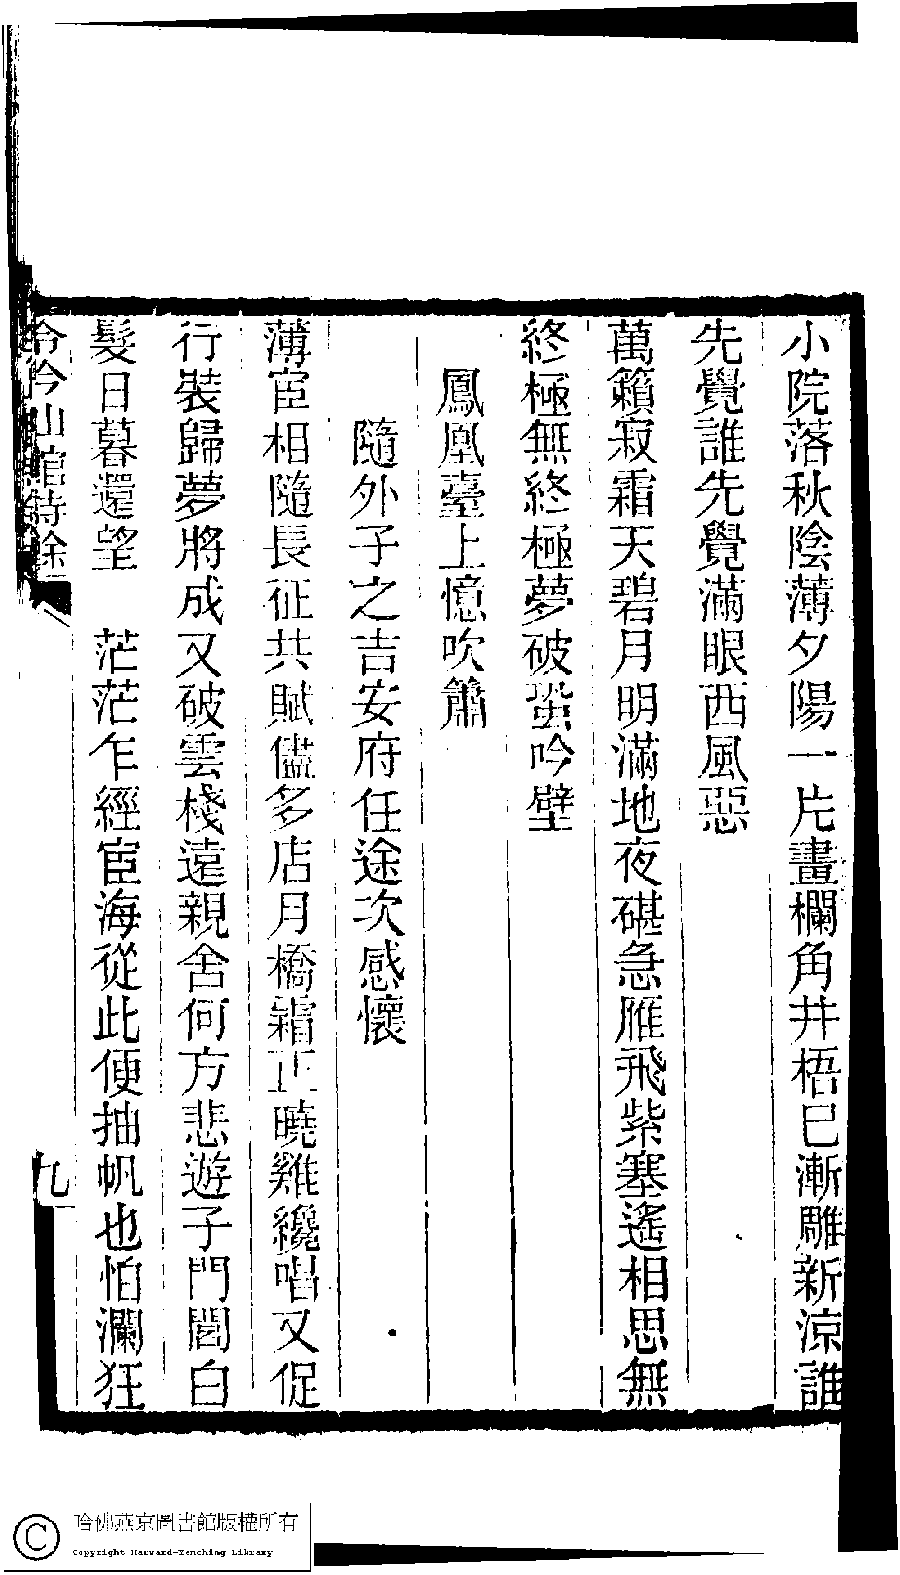 小院落秋陰薄夕陽一片畫欄角井梧已漸雕新涼誰
先覺誰先覺滿眼西風惡
萬籟寂霜天碧月明滿地夜碪急雁飛紫塞遙相思無
終極無終極夢破蛩吟壁
鳳凰臺上憶吹簫
隨外子之吉安府任途次感懷
薄宦相隨長征共賦儘多店月橋霜正曉雞纔唱又促
行裝歸夢將成又破雲棧遠親舍何方悲遊子門閭白
髮日暮還望　茫茫乍經宦海從此便抽帆也怕瀾狂
吟山館詩餘
九
哈佛燕京圖書館版權所有
Copyright Harvard-Yenching Library